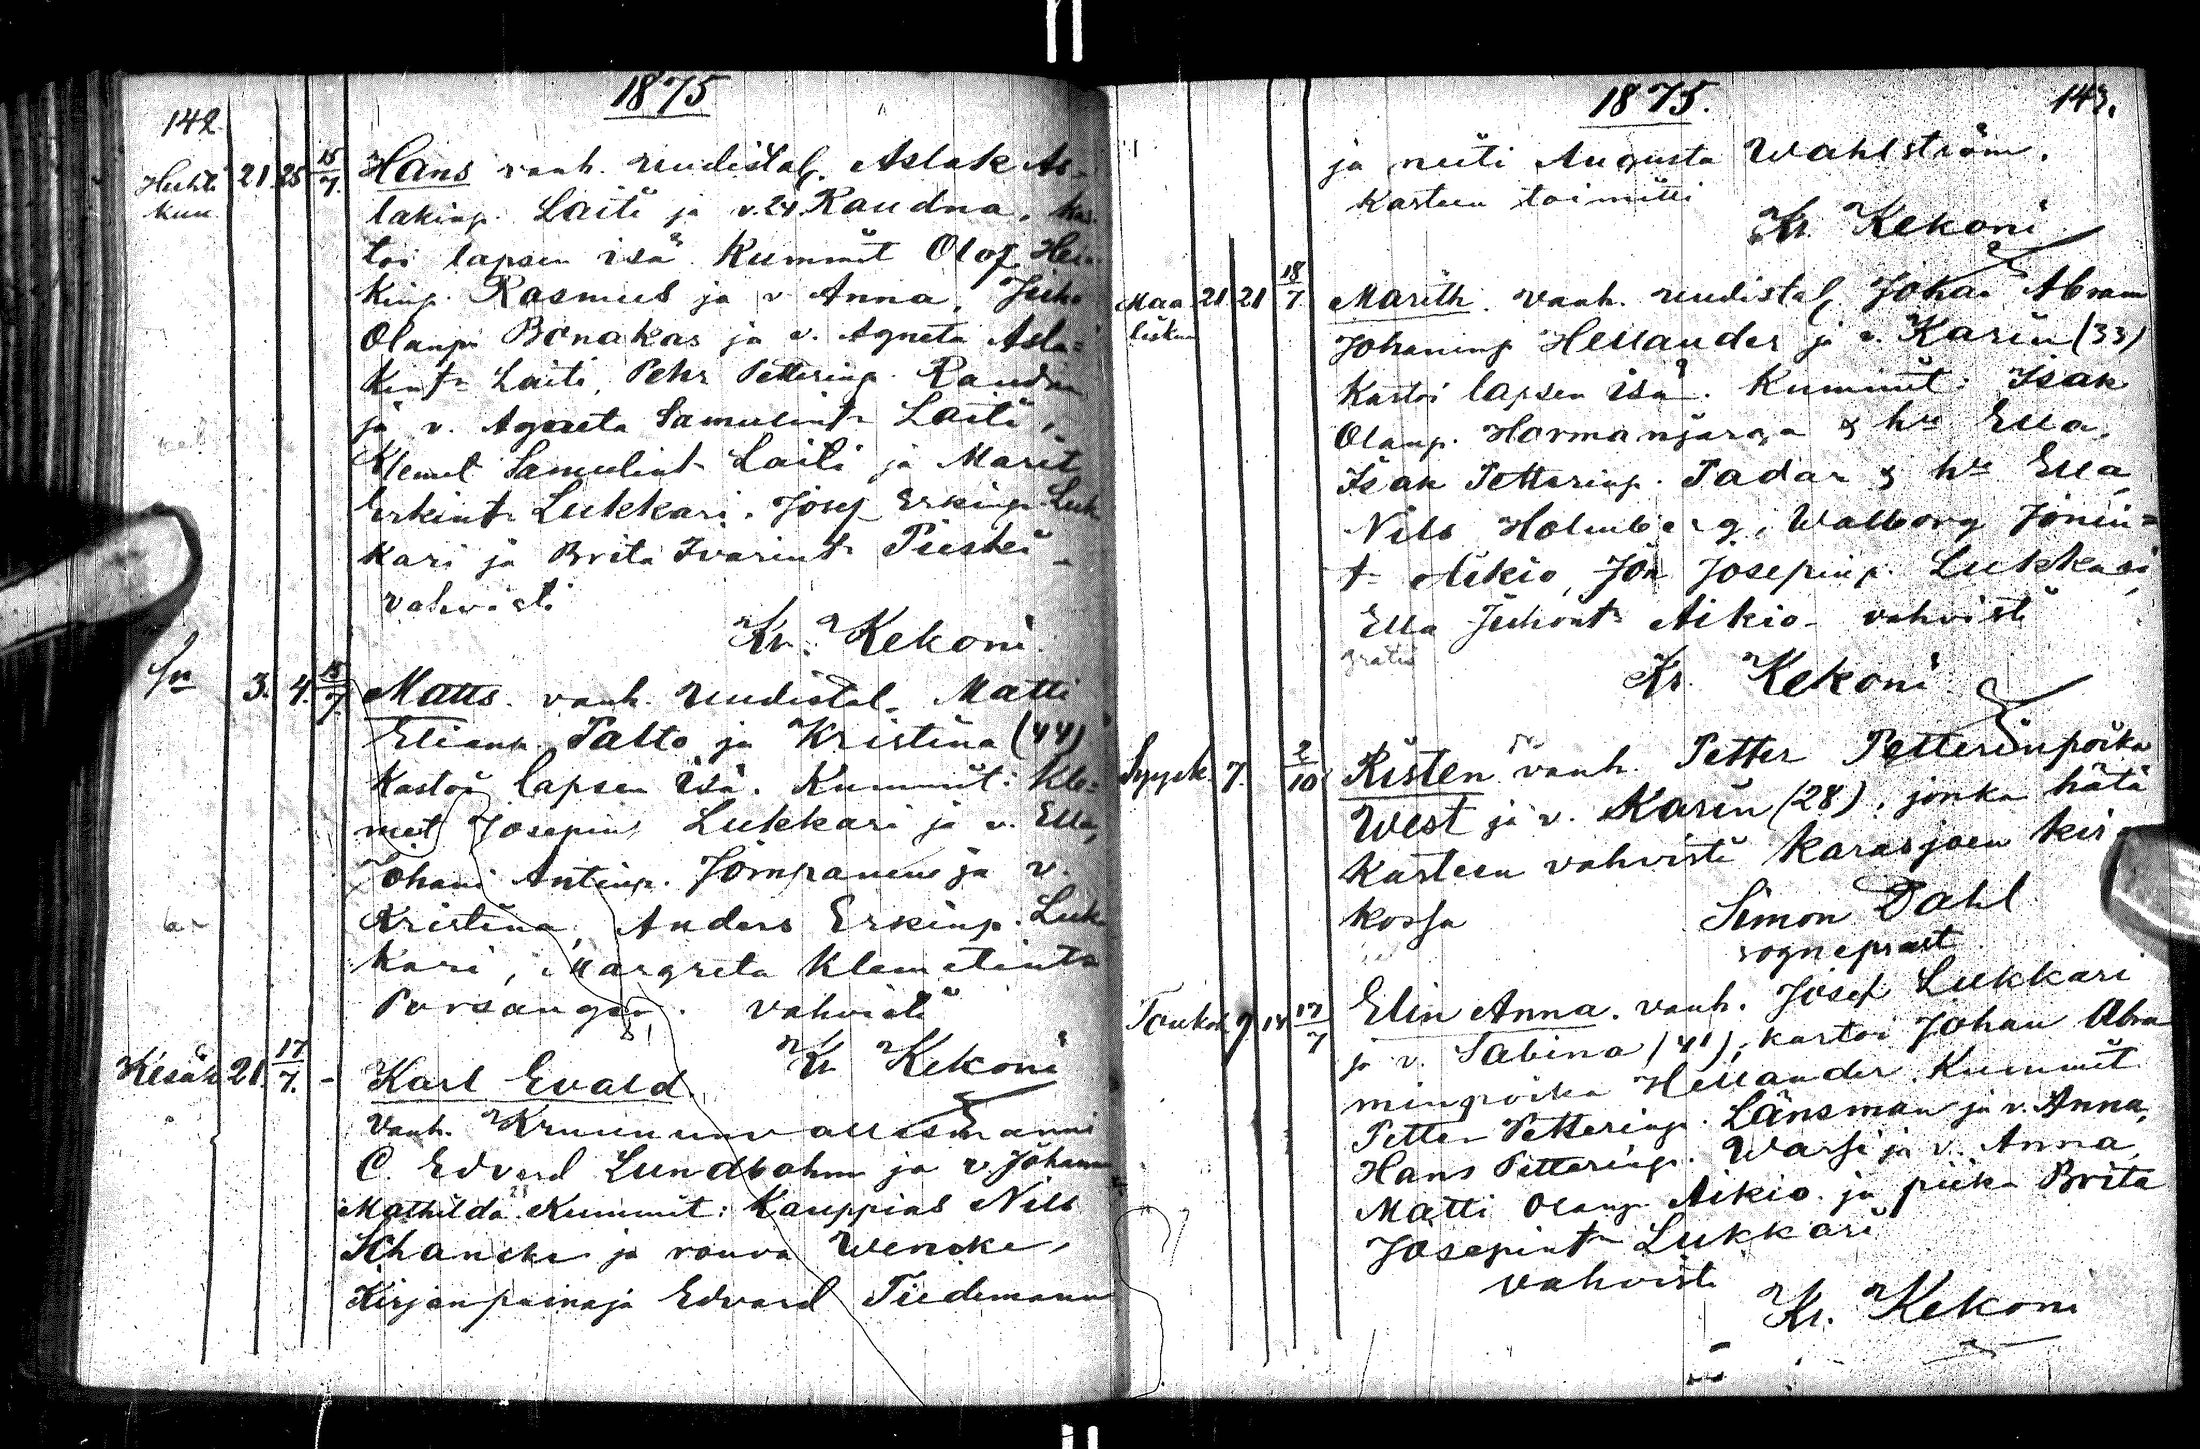 142.
1875
Huhti 21. 25 15/7. Hans vanh. uudistal. Aslak As-
kuu. lakinp. Laiti ja v. 24. Raudna, kas-
toi lapsen isä. Kummit Olof Hen-
kinp. Rasmus ja v. Anna, Juho
Olanp. Bonakas ja v. Agneta Asla=
kintr Laiti, Pehr Petterinp. Raudna
ja v. Agneta Samulintr Laiti,
Klemet Samulint. Laiti ja Marit
Erkintr Lukkari. Josef Erkinp. Luk
kari ja Brita Ivarintr
vahvisti
Kr. Kekoni.
3. 4. 15/7. Matts. vanh. uudistal. Matti
Elianp. Palto ja Kristina (44)
Kastoi lapsen isä. Kummit: Kle=
met Josepinp Lukkari ja v. Ella,
Johani Antinp. Jompanen ja v.
Kristina, Anders Erkinp. Luk
kari, Margreta Klemetintr
Porsanger. vahvisti
Kr Kekoni
Kesäk 21. 17/7. - Karl Evald.
vanh. Kruununvallesmanni
C. Edvard Lundbohm ja v. Johanna
Mathilda. Kummit: Kauppias Nils
Schancke ja rouva Wencke,
Kirjanpainaja Edvard Tiedemann
1875.
143.
ja neiti Augusta Wahlström.
Kasteen toimitti
Kr. Kekoni
Maa 21 21 18/7 Marith. vanh. uudistal. Johan Abram
liskuu Johaninp Hellander ja v. Karin (33)
Kastoi lapsen isä. Kummit: Isak
Olanp. Hormanjarga & hu Ella,
Isak Petterinp. Padar & hu Ella,
Nils Holmberg, Walborg Jonin=
tr Aikio, Jon Josepinp. Lukkari,
Ella Juhontr Aikio - vahvisti
gratis
Kr. Kekoni
Syysk. 7. 2/10 Risten vanh. Petter Petterinpoika
West ja v. Karin (28), jonka hätä
kasteen vahvisti Karasjoen kir-
kossa Simon Dahl
sogneprest
Toukok 9 14 17/7 Elin Anna. vanh. Josef Lukkari
ja v. Sabina (41), kastoi Johan Abra
minpoika Hellander. Kummit
Petter Petterinp. Länsman ja v. Anna,
Hans Petterinp. Warsi ja v. Anna,
Matti Olanp. Aikio ja piika Brita
Josepintr Lukkari
vahvisti
Kr. Kekoni